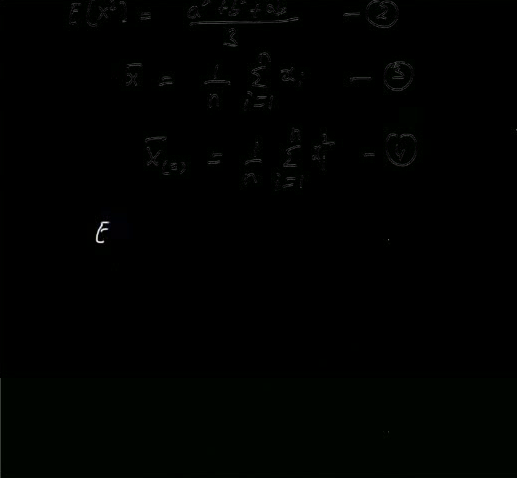 E(x²) = a² + b² + ab / 3 — ②
x̄ = 1/n Σ i=1 n xᵢ — ③
x̄₍₂₎ = 1/n Σ i=1 n xᵢ² — ④
E